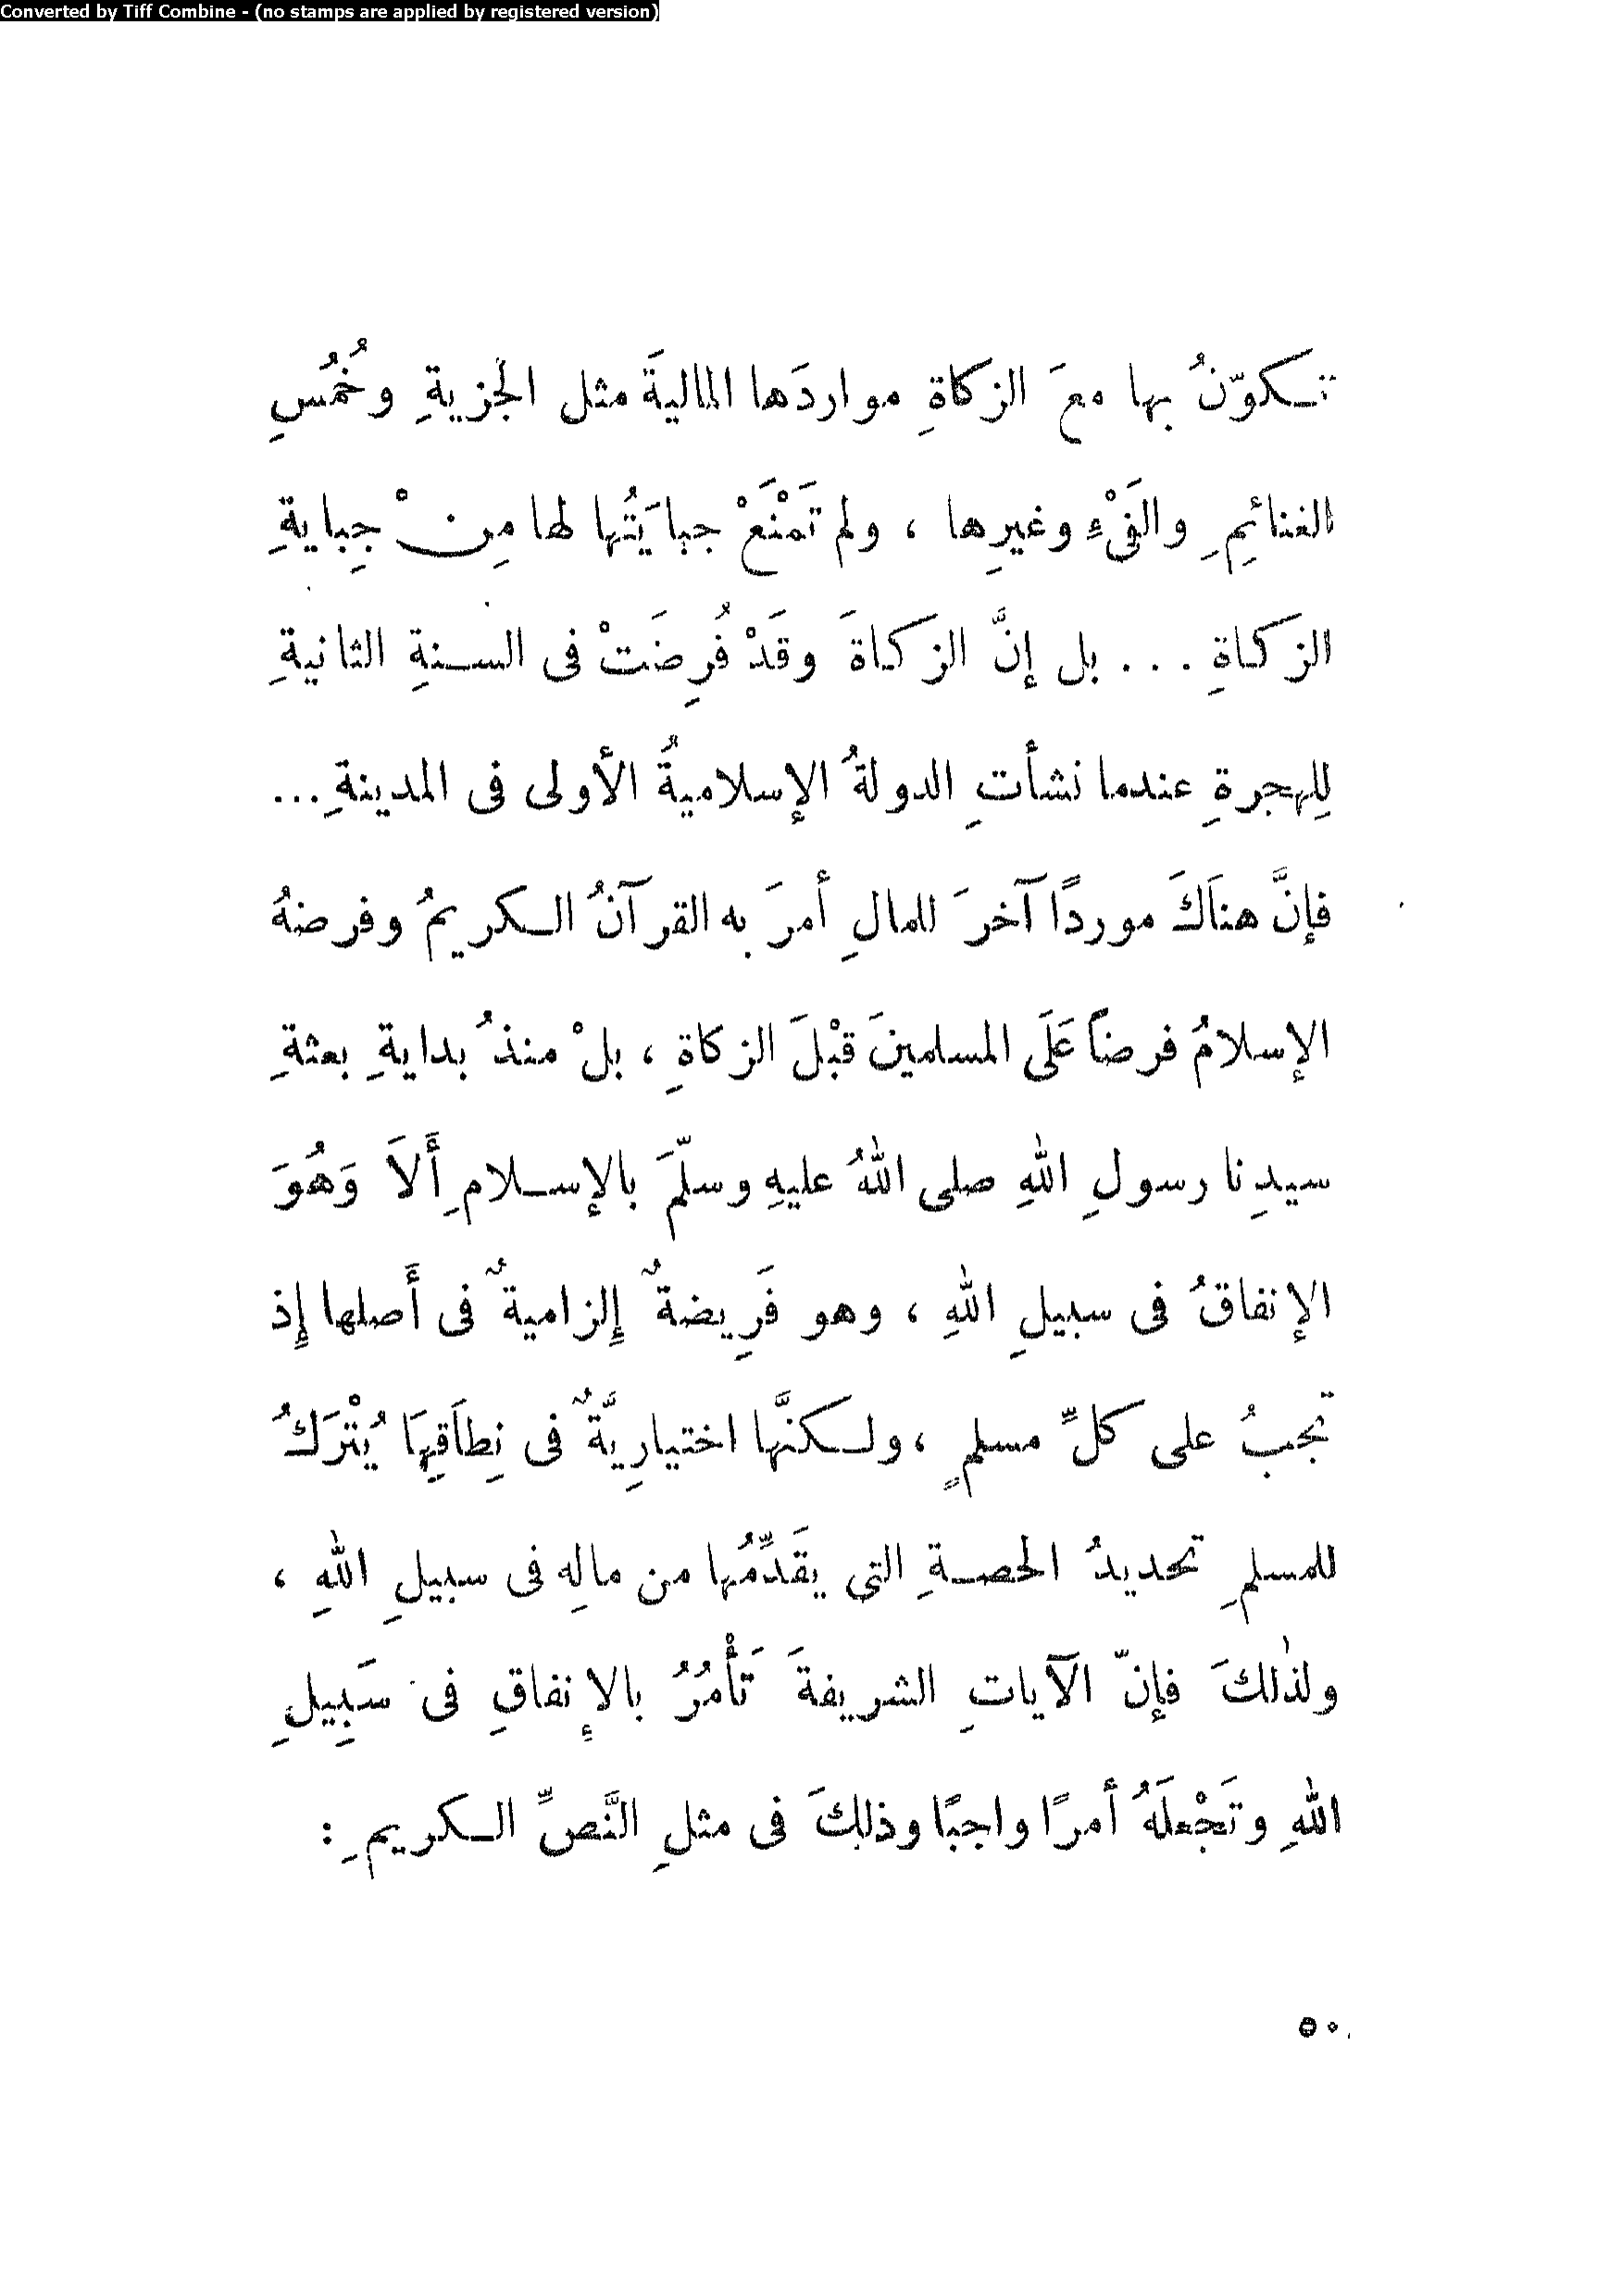 Converted by Tiff Combine - (no stamps are applied by registered version)
تكوّنُ بها معَ الزكاةِ مواردَها الماليةَ مثل الجزيةِ وخُمُسِ
الغنائِمِ والفَىْءِ وغيرِها ، ولم تَمْنَعْ جبايَتُها لها مِنْ جِبايةِ
الزكاةِ ... بل إنَّ الزكاةَ وقَدْ فُرِضَتْ فى السنةِ الثانيةِ
لِلهجرةِ عندما نشأتِ الدولةُ الإسلاميةُ الأولى فى المدينةِ ...
فإنَّ هنَاكَ موردًا آخرَ للمالِ أمرَ به القرآنُ الكريمُ وفرضهُ
الإسلامُ فرضاً عَلَى المسلمينَ قبْلَ الزكاةِ ، بلْ منذُ بدايةِ بعثةِ
سيدِنا رسولِ اللهِ صلى اللهُ عليهِ وسلّمَ بالإسلامِ أَلاَ وَهُوَ
الإنفاقُ فى سبيلِ اللهِ ، وهو فَرِيضةٌ إلزاميةٌ فى أَصلها إِذ
تجبُ على كلِّ مسلمٍ ، ولكنَّها اختيارِيَّةٌ فى نِطاَقِهاَ يُتْرَكُ
للمسلمِ تحديدُ الحصةِ التى يقَدِّمُها من مالِه فى سبيلِ اللهِ ،
ولذٰلكَ فإنّ الآياتِ الشريفةَ تَأْمُرُ بالإنفاقِ فى سَبِيلِ
اللهِ وتَجْعلَهُ أمرًا واجبًا وذلِكَ فى مثلِ النَّصِّ الكريمِ :
٥٠